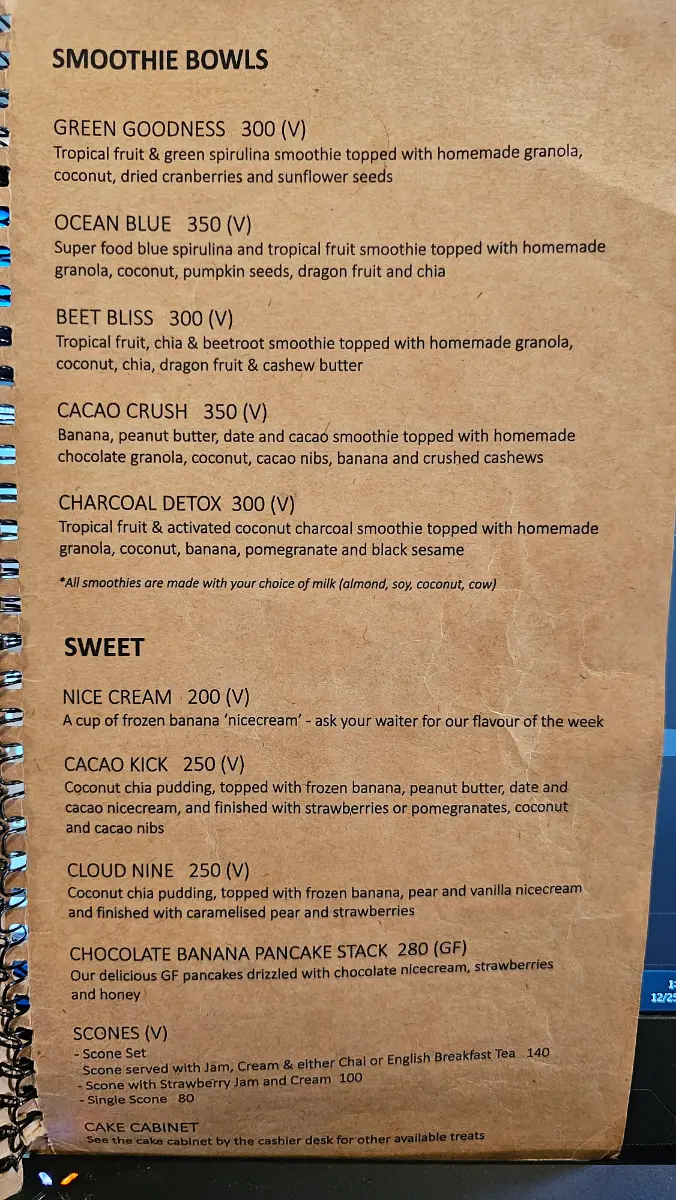 SMOOTHIE BOWLS
GREEN GOODNESS 300 (V)
Tropical fruit & green spirulina smoothie topped with homemade granola,
coconut, dried cranberries and sunflower seeds
OCEAN BLUE 350 (V)
Super food blue spirulina and tropical fruit smoothie topped with homemade
granola, coconut, pumpkin seeds, dragon fruit and chia
BEET BLISS 300 (V)
Tropical fruit, chia & beetroot smoothie topped with homemade granola,
coconut, chia, dragon fruit & cashew butter
CACAO CRUSH 350 (V)
Banana, peanut butter, date and cacao smoothie topped with homemade
chocolate granola, coconut, cacao nibs, banana and crushed cashews
CHARCOAL DETOX 300 (V)
Tropical fruit & activated coconut charcoal smoothie topped with homemade
granola, coconut, banana, pomegranate and black sesame
*All smoothies are made with your choice of milk (almond, soy, coconut, cow)
SWEET
NICE CREAM 200 (V)
A cup of frozen banana ‘nicecream’ - ask your waiter for our flavour of the week
CACAO KICK 250 (V)
Coconut chia pudding, topped with frozen banana, peanut butter, date and
cacao nicecream, and finished with strawberries or pomegranates, coconut
and cacao nibs
CLOUD NINE 250 (V)
Coconut chia pudding, topped with frozen banana, pear and vanilla nicecream
and finished with caramelised pear and strawberries
CHOCOLATE BANANA PANCAKE STACK 280 (GF)
Our delicious GF pancakes drizzled with chocolate nicecream, strawberries
and honey
SCONES (V)
- Scone Set
Scone served with Jam, Cream & either Chai or English Breakfast Tea 140
- Scone with Strawberry Jam and Cream 100
- Single Scone 80
CAKE CABINET
See the cake cabinet by the cashier desk for other available treats